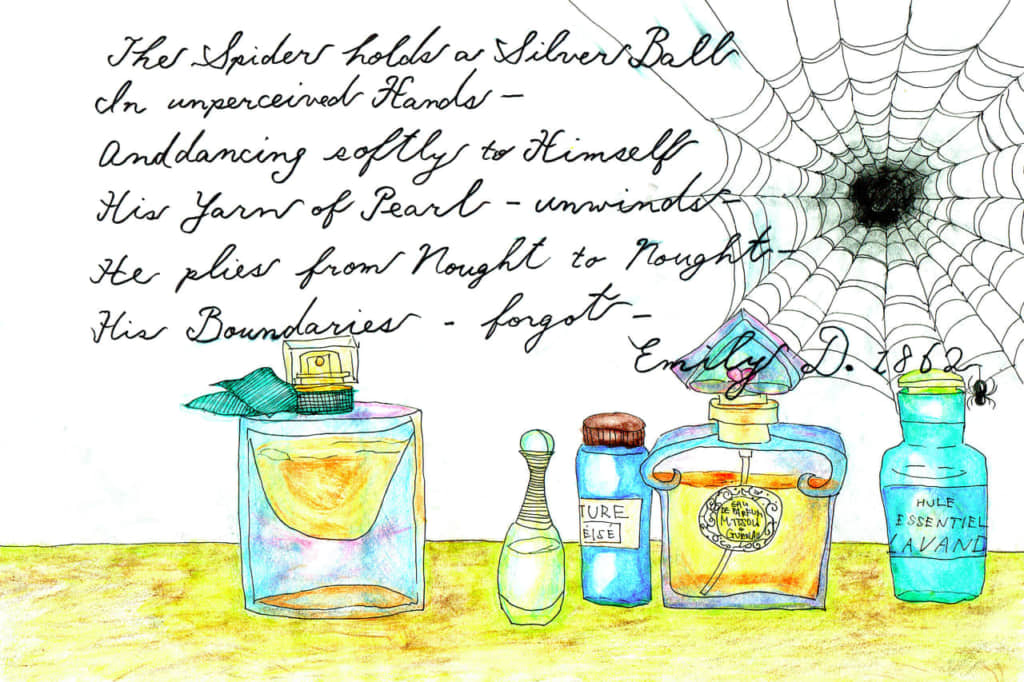 The Spider holds a Silver Ball
In unperceived Hands —
And dancing softly to Himself
His Yarn of Pearl - unwinds —
He plies from Nought to Nought —
His Boundaries - forgot —
Emily D. 1862
TURE
ÉISÉ
EAU
DE PARFUM
MITSOU
GUERLAI
HULE
ESSENTIEL
LAVAND